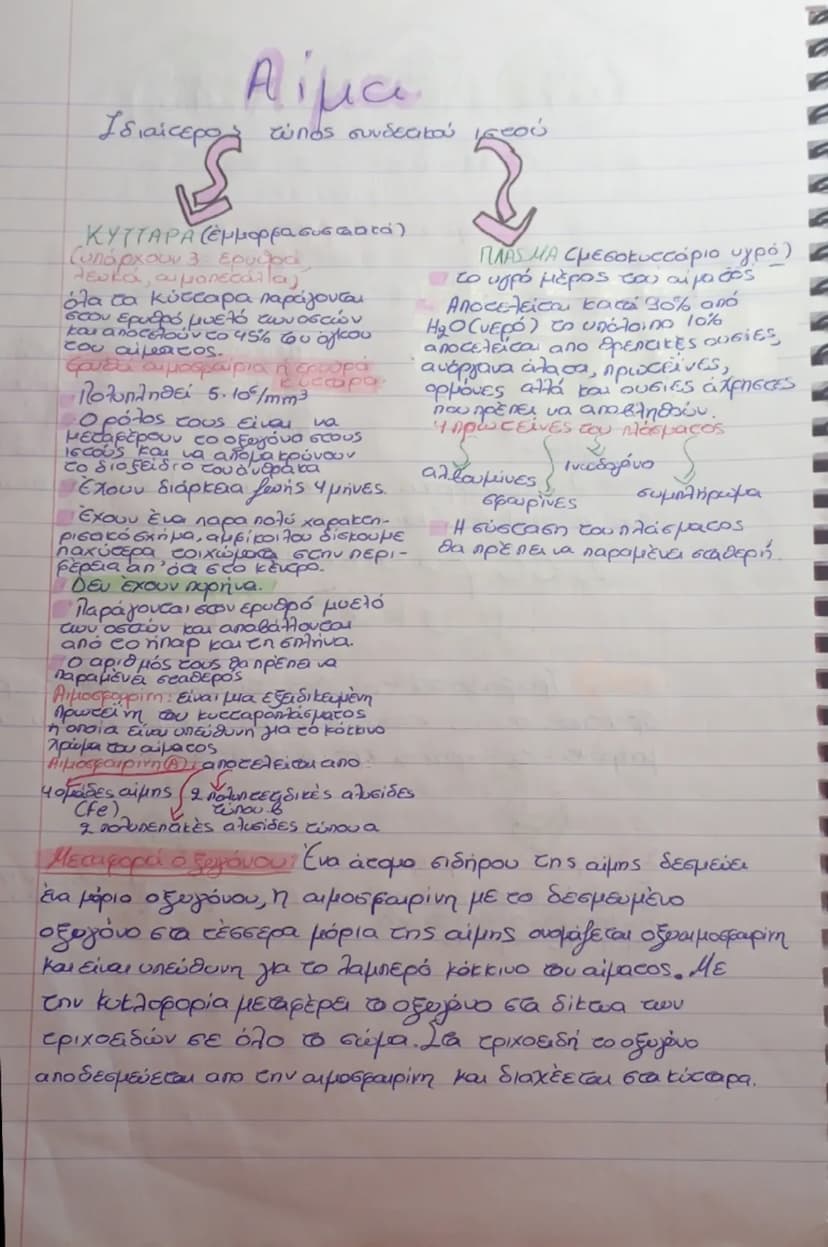 Αίμα
Ιδιαίτερος τύπος συνδετικού ιστού
ΚΥΤΤΑΡΑ (έμμορφα συστατικά)
(υπάρχουν 3: ερυθρά
λευκά, αιμοπετάλια)
όλα τα κύτταρα παράγονται
στον ερυθρό μυελό των οστών
και αποτελούν το 45% του όγκου
του αίματος.
Ερυθρά αιμοσφαίρια ή ερυθρά
κύτταρα
Πολυπληθεί 5·10⁶/mm³
Ο ρόλος τους είναι να
μεταφέρουν το οξυγόνο στους
ιστούς και να απομακρύνουν
το διοξείδιο του άνθρακα
Έχουν διάρκεια ζωής 4 μήνες.
Έχουν ένα παρα πολύ χαρακτη-
ριστικό σχήμα, αμφίκοιλου δίσκου με
παχύτερα τοιχώματα στην περι-
φέρεια απ' ότι στο κέντρο.
Δεν έχουν πυρήνα.
Παράγονται στον ερυθρό μυελό
των οστών και αποβάλλονται
από το ήπαρ και τη σπλήνα.
Ο αριθμός τους θα πρέπει να
παραμένει σταθερός
Αιμοσφαιρίνη: είναι μια εξειδικευμένη
πρωτεΐνη του κυτταροπλάσματος
η οποία είναι υπεύθυνη για το κόκκινο
χρώμα του αίματος
Αιμοσφαιρίνη (Α): αποτελείται απο
4 ομάδες αίμης 2 πολυπεπτιδικές αλυσίδες
(Fe) τύπου β
2 αλυσίδες τύπου α
ΠΛΑSΜΑ (μεσοκυττάριο υγρό)
το υγρό μέρος του αίματος
Αποτελείται κατά 90% από
H₂O (νερό) το υπόλοιπο 10%
αποτελείται απο θρεπτικές ουσίες,
ανόργανα άλατα, πρωτείνες,
ορμόνες αλλά και ουσιες άχρηστες
που πρέπει να αποβληθούν.
4 πρωτεΐνες του πλάσματος
αλβουμίνες ινωδογόνο
σφαιρίνες συμπλήρωμα
Η σύσταση του πλάσματος
θα πρέπει να παραμένει σταθερή
Μεταφορά οξυγόνου: Ένα άτομο σιδήρου της αίμης δεσμεύει
ένα μόριο οξυγόνου, η αιμοσφαιρίνη με το δεσμευμένο
οξυγόνο στα τέσσερα μόρια της αίμης ονομάζεται οξυαιμοσφαιρίνη
και είναι υπεύθυνη για το λαμπερό κόκκινο του αίματος. Με
την κυκλοφορία μεταφέρει το οξυγόνο στα δίκτυα των
τριχοειδών σε όλο το σώμα. Στα τριχοειδή το οξυγόνο
αποδεσμεύεται απο την αιμοσφαιρίνη και διαχέεται στα κύτταρα.